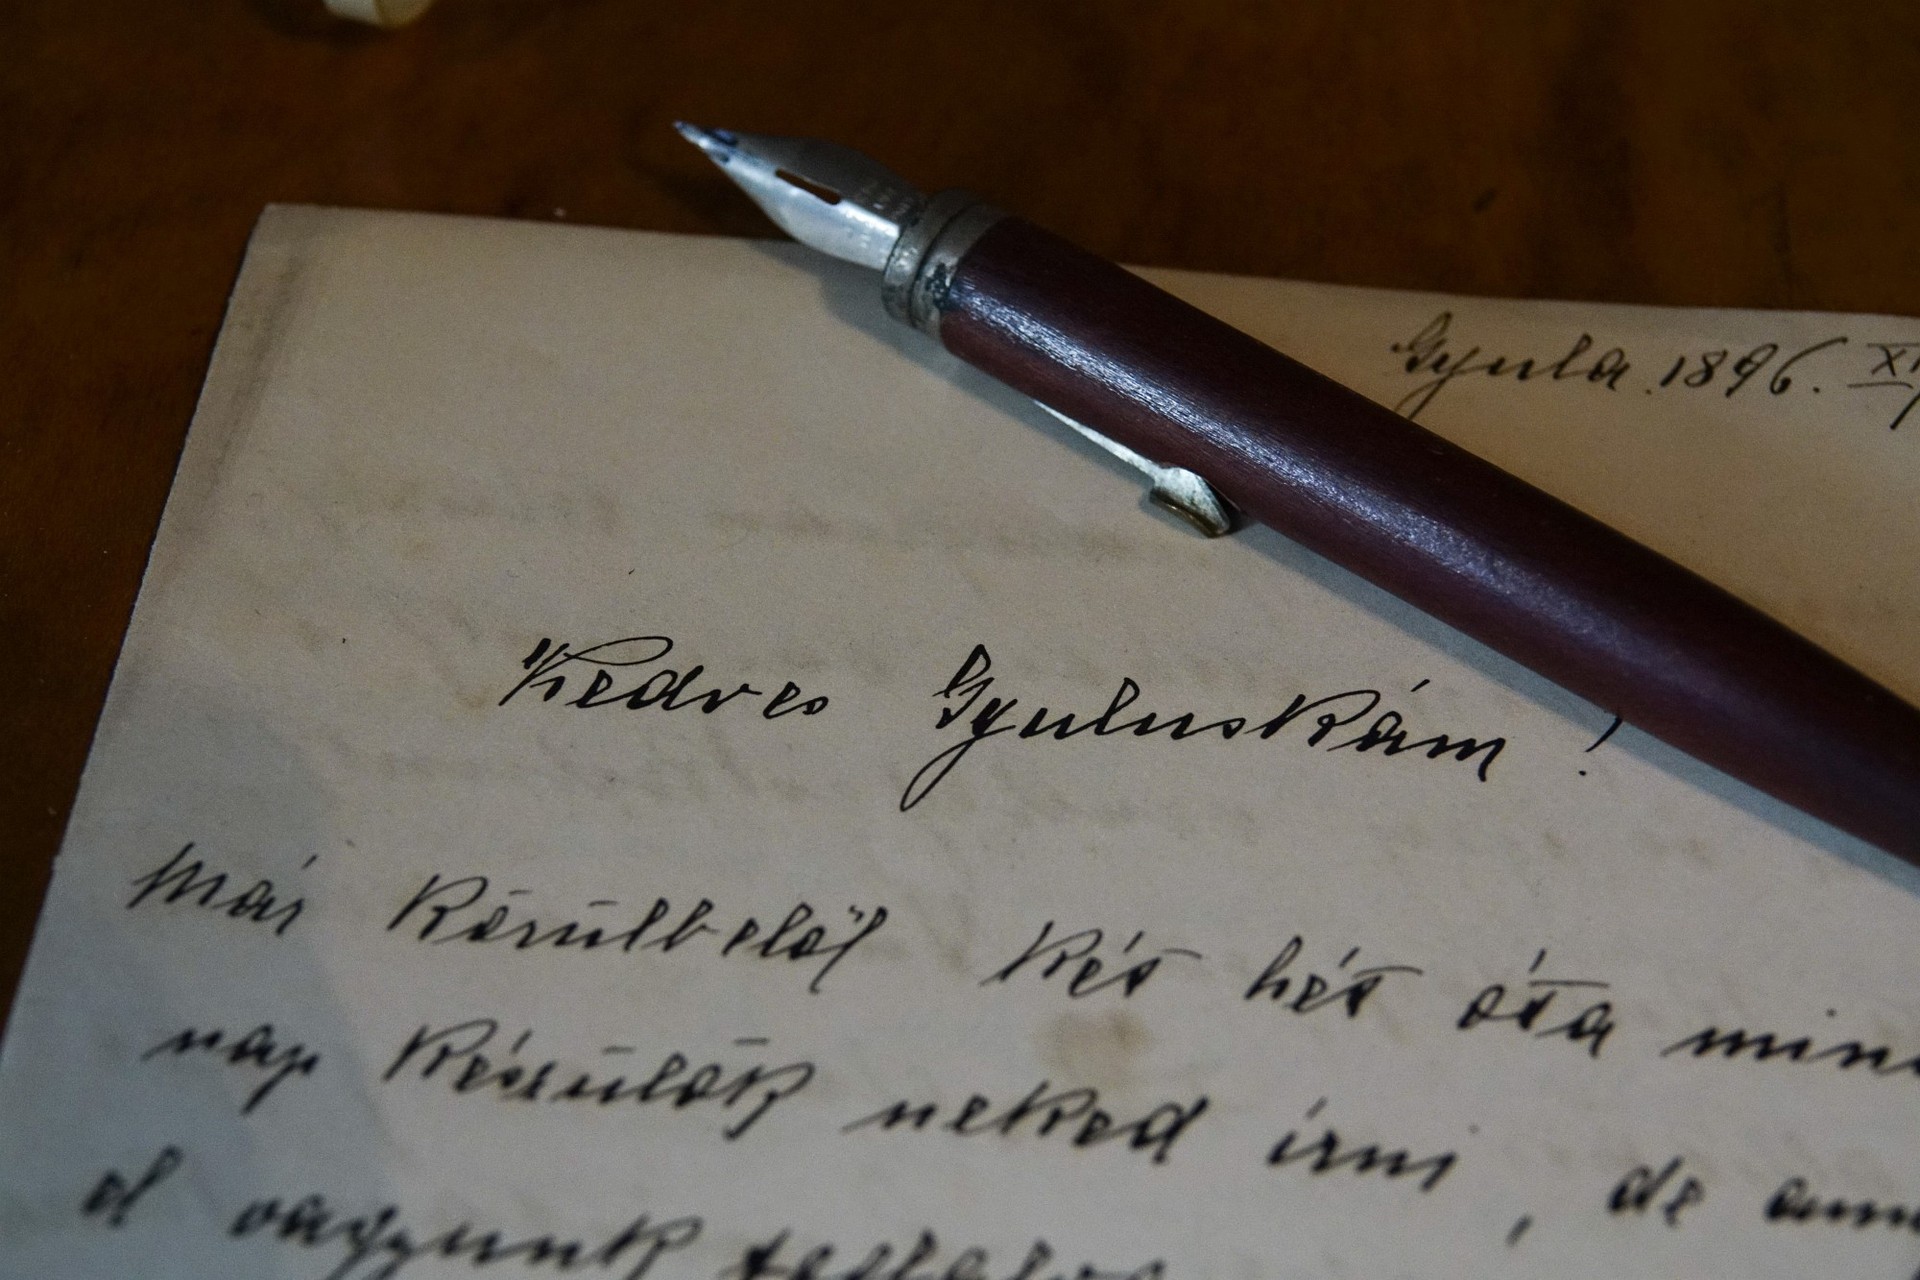 Gyula. 1896. XI
Kedves Gyuluskám!
Már körülbelől két hét óta min
nap készülök neked írni, de ann
el vagyunk foglalva